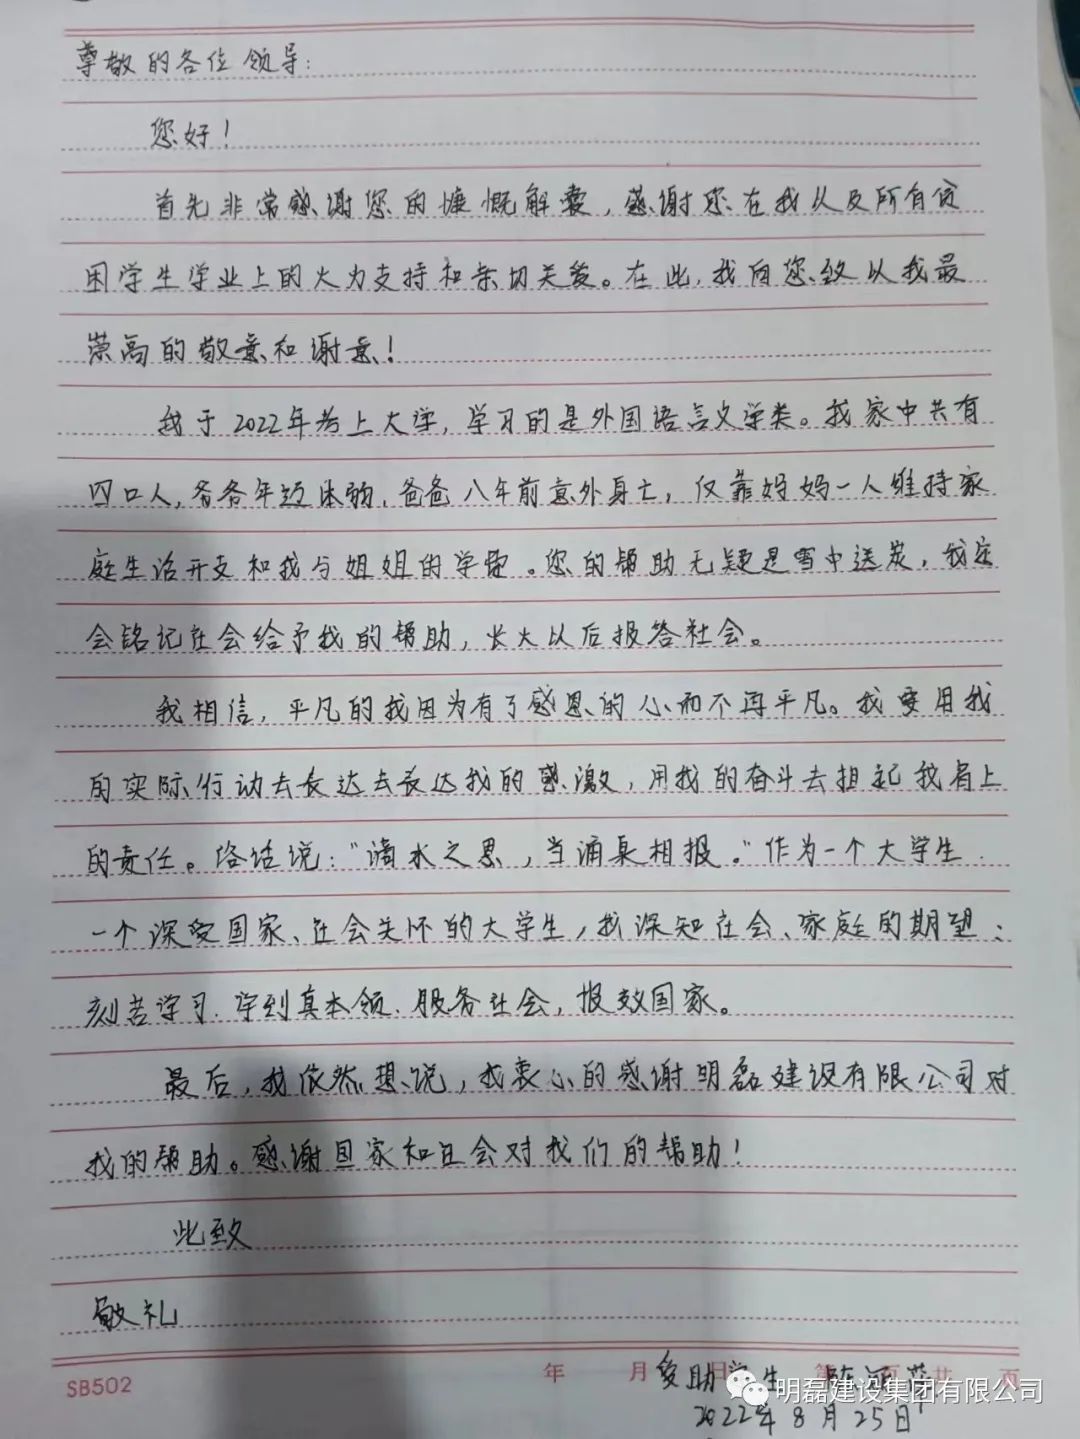 尊敬的各位领导:
您好!
首先非常感谢您的慷慨解囊,感谢您在我以及所有贫
困学生学业上的大力支持和亲切关爱。在此,我向您致以我最
崇高的敬意和谢意!
我于2022年考上大学,学习的是外国语言文学类。我家中共有
四口人,爷爷年迈体弱,爸爸八年前意外身亡,仅靠妈妈一人维持家
庭生活开支和我与姐姐的学费。您的帮助无疑是雪中送炭,我定
会铭记社会给予我的帮助,长大以后报答社会。
我相信,平凡的我因为有了感恩的心而不再平凡。我要用我
的实际行动去表达去表达我的感激,用我的奋斗去担起我肩上
的责任。俗话说:"滴水之恩,当涌泉相报。"作为一个大学生
一个深受国家、社会关怀的大学生,我深知社会、家庭的期望:
刻苦学习.学到真本领.服务社会,报效国家。
最后,我依然想说,我衷心的感谢明磊建设有限公司对
我的帮助。感谢国家和社会对我们的帮助!
此致
敬礼
SB502 年 月 日 第 页 共 页
受助学生
明磊建设集团有限公司
2022年8月25日